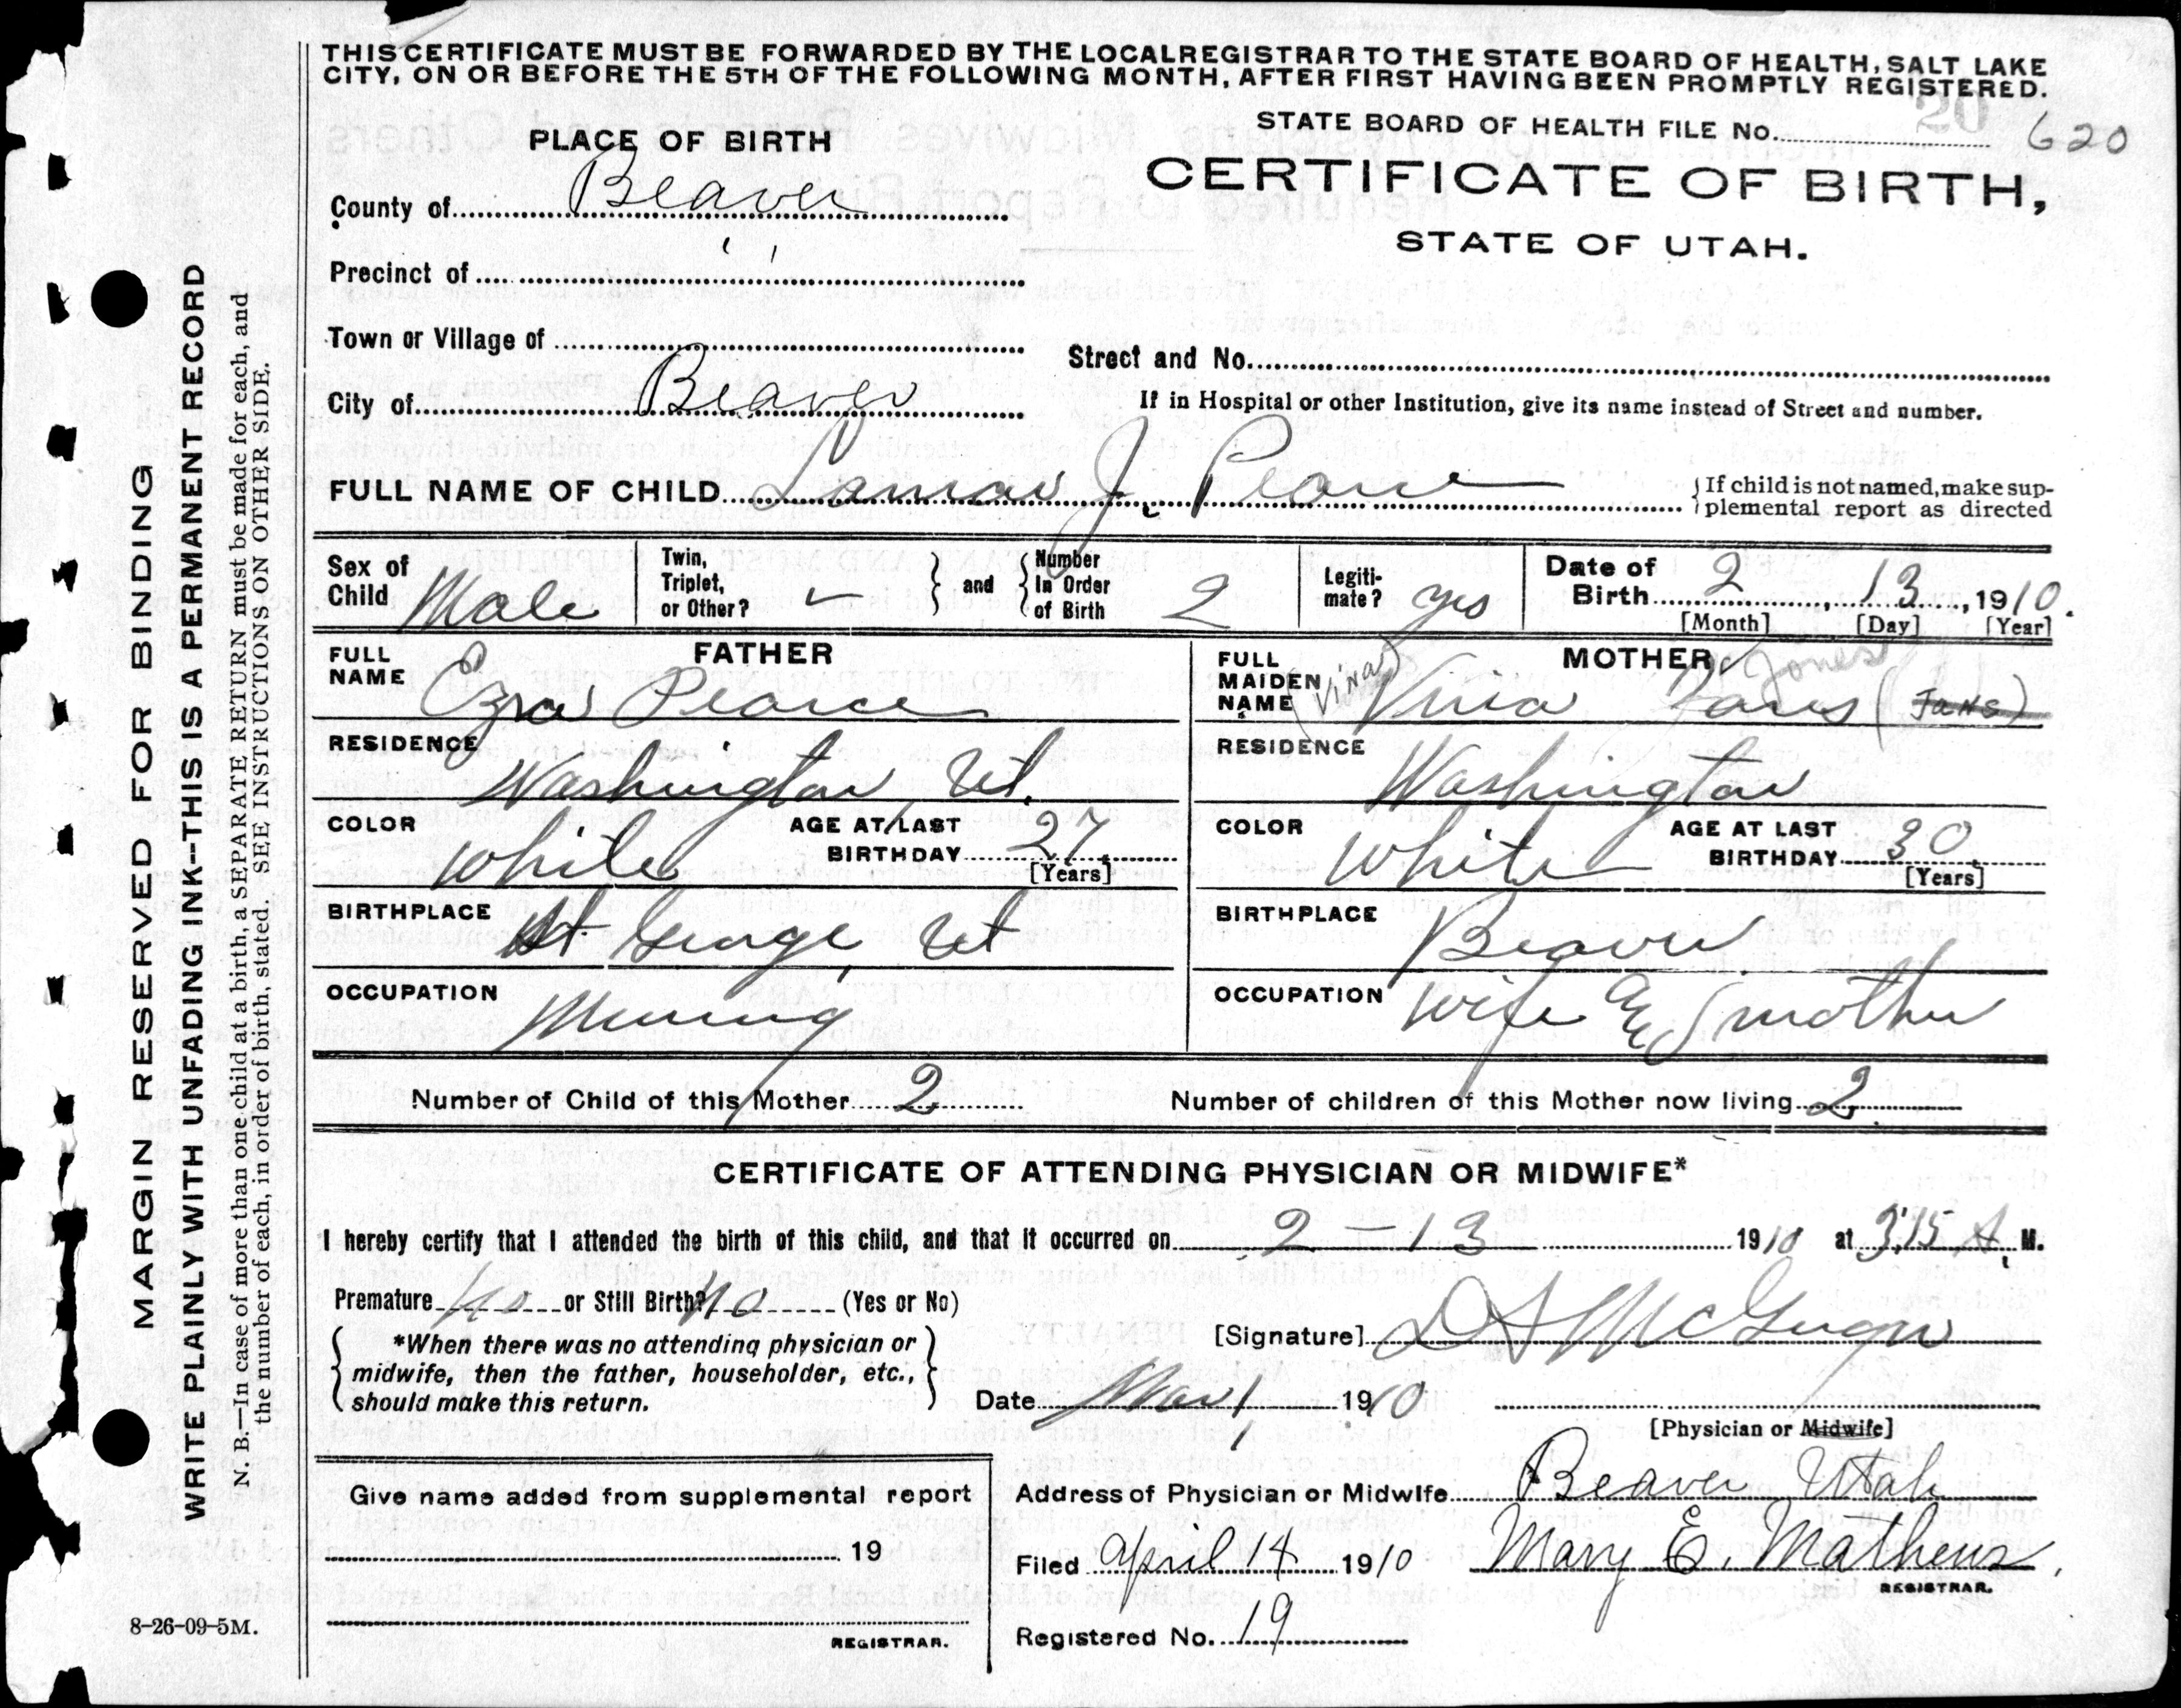 THIS CERTIFICATE MUST BE FORWARDED BY THE LOCAL REGISTRAR TO THE STATE BOARD OF HEALTH, SALT LAKE
CITY, ON OR BEFORE THE 5TH OF THE FOLLOWING MONTH, AFTER FIRST HAVING BEEN PROMPTLY REGISTERED.
STATE BOARD OF HEALTH FILE No. 20 620
PLACE OF BIRTH
CERTIFICATE OF BIRTH,
STATE OF UTAH.
County of Beaver
Precinct of " "
Town or Village of
Street and No.
City of Beaver
If in Hospital or other Institution, give its name instead of Street and number.
FULL NAME OF CHILD Lamar J. Pearce
{If child is not named, make sup-
plemental report as directed
Sex of Child Male
Twin, Triplet, or Other? ✓
and
Number In Order of Birth 2
Legiti-mate? yes
Date of Birth 2, 13, 1910.
[Month] [Day] [Year]
FATHER
FULL NAME Ezra Pearce
RESIDENCE Washington, Ut.
COLOR White
AGE AT LAST BIRTHDAY 27
[Years]
BIRTHPLACE St. George, Ut
OCCUPATION Mining
MOTHER
FULL MAIDEN NAME (Vina) Vina Jones
RESIDENCE Washington
COLOR White
AGE AT LAST BIRTHDAY 30
[Years]
BIRTHPLACE Beaver
OCCUPATION Wife & mother
Number of Child of this Mother 2
Number of children of this Mother now living 2
CERTIFICATE OF ATTENDING PHYSICIAN OR MIDWIFE*
I hereby certify that I attended the birth of this child, and that it occurred on 2 - 13 1910 at 3:15 A. M.
Premature no or Still Birth? no (Yes or No)
*When there was no attending physician or
midwife, then the father, householder, etc.,
should make this return.
[Signature] D A McGregor
Date Mar 1 1910
[Physician or Midwife]
Give name added from supplemental report
19
REGISTRAR.
Address of Physician or Midwife Beaver Utah
Filed April 14 1910 Mary E. Mathews,
REGISTRAR.
Registered No. 19
MARGIN RESERVED FOR BINDING
WRITE PLAINLY WITH UNFADING INK--THIS IS A PERMANENT RECORD
N. B.—In case of more than one child at a birth, a SEPARATE RETURN must be made for each, and
the number of each, in order of birth, stated. SEE INSTRUCTIONS ON OTHER SIDE.
8-26-09-5M.